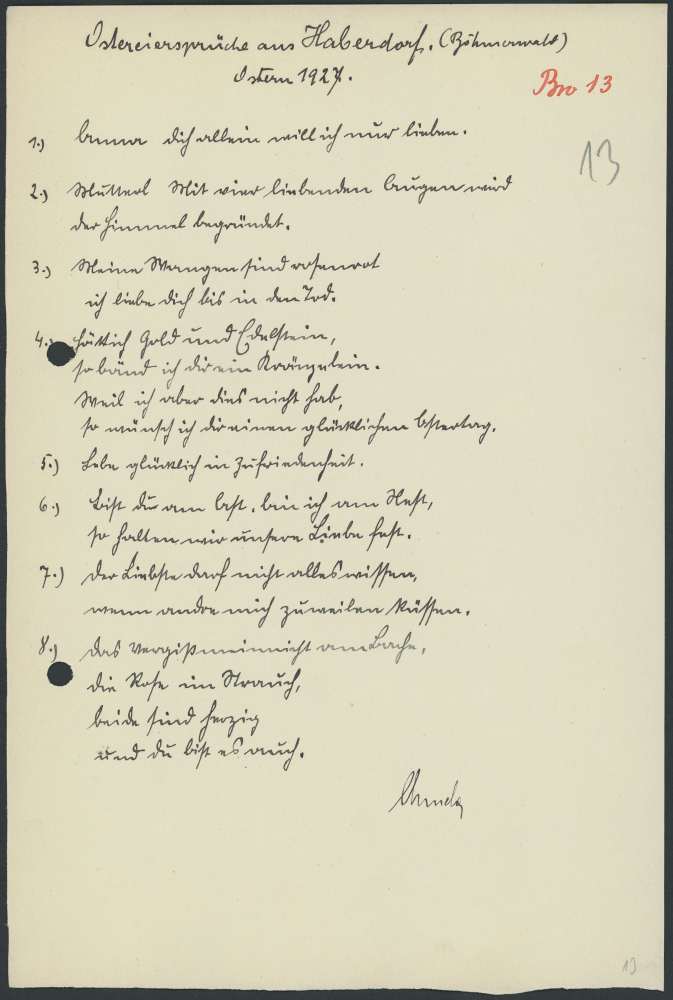 Ostereiersprüche aus Haberdorf. (Böhmerwald)
Ostern 1927.
Bro 13
13
1.) Anna dich allein will ich nur lieben.
2.) Mutterl Mit vier liebenden Augen wird
der Himmel begründet.
3.) Meine Wangen sind rosenrot
ich liebe dich bis in den Tod.
4.) Hätt ich Gold und Edelstein,
so bänd ich dir ein Kränzelein.
Weil ich aber dies nicht hab,
so wünsch ich dir einen glücklichen Ostertag.
5.) Lebe glücklich in Zufriedenheit.
6.) Bist du am Ast, bin ich am Nest,
so halten wir unsere Liebe fest.
7.) Der Liebste darf nicht alles wissen,
wenn andre mich zuweilen küssen.
8.) Das Vergißmeinnicht am Bache,
die Rose im Strauch,
beide sind herzig
und du bist es auch.
13